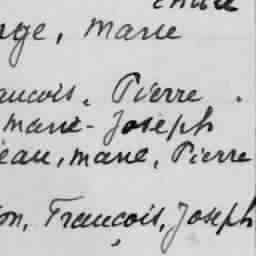 nge, Marie
ancois, Pierre.
Marie-Joseph
ean, Marie, Pierre
on, François, Joseph